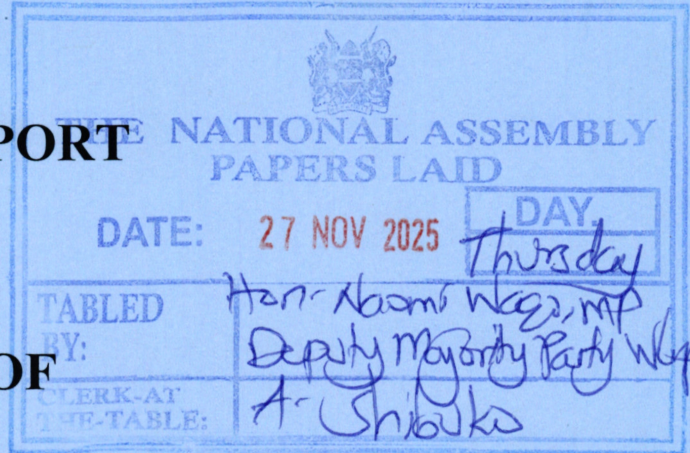 PORT
THE NATIONAL ASSEMBLY
PAPERS LAID
DATE: 27 NOV 2025
DAY.
Thursday
TABLED BY: Hon. Naomi Waqo, MP
Deputy Majority Party Whip
OF
CLERK-AT THE-TABLE: A. Shibuko